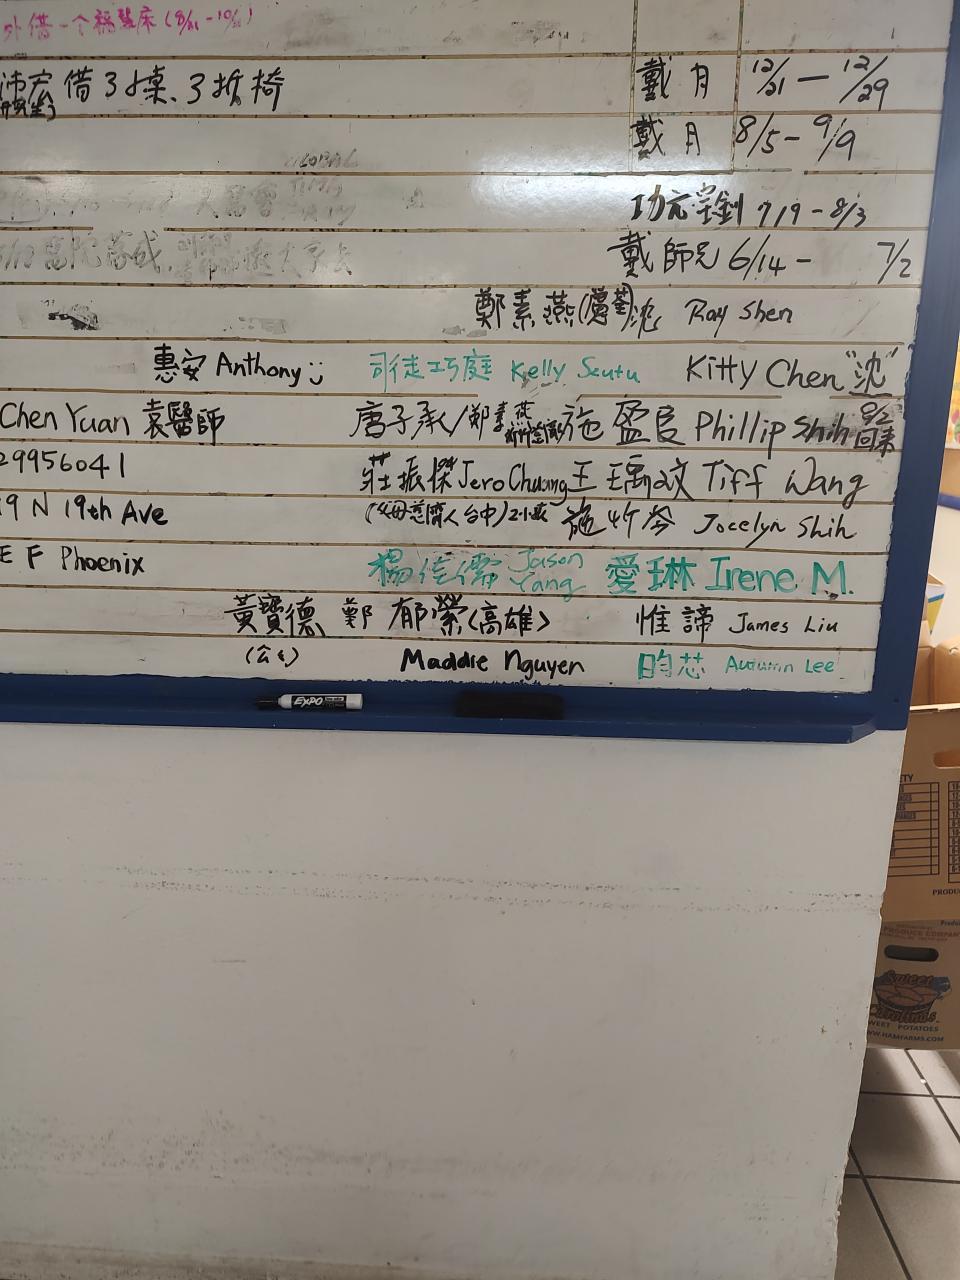 外借一个福慧床(8/21-10/21)
借3桌、3折椅 戴月 12/21 — 12/29
戴月 8/5 - 9/9
功 7/9 - 8/3
戴師兄 6/14 - 7/2
鄭素燕 沈 Ray Shen
惠安 Anthony 司徒巧庭 Kelly Scutu Kitty Chen "沈"
Chen Yuan 袁醫師 唐子承/鄭素燕 施盈臣 Phillip Shih 9/2回來
29956041 莊振傑 Jero Chuang 王瑀玟 Tiff Wang
19 N 19th Ave (父母慈濟人台中) 施竹岑 Jocelyn Shih
E F Phoenix 楊佳儒 Jason Yang 愛琳 Irene M.
黃寶德 鄭郁縈(高雄) 惟諦 James Liu
Maddie Nguyen 昀芯 Autumn Lee
EXPO
PRODUCE COMPANY
Sweet Carolinas
SWEET POTATOES
WWW.HAMFARMS.COM